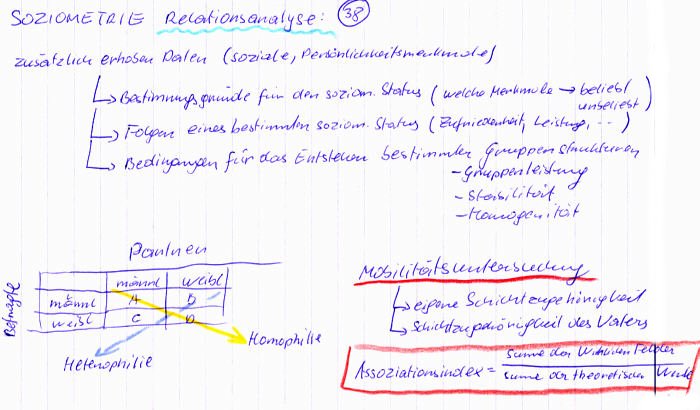 SOZIOMETRIE Relationsanalyse: 38
zusätzlich erhoben Daten (soziale, Persönlichkeitsmerkmale)
Bestimmungsgründe für den soziom. Status (welche Merkmale → beliebt
unbeliebt)
Folgen eines bestimmten soziom. Status (Zufriedenheit, Leistung, ...)
Bedingungen für das Entstehen bestimmter Gruppenstrukturen
- Gruppenleistung
- Stabilität
- Homogenität
Partner
männl weibl
Befragte
männl A B
weibl C D
Homophilie
Heterophilie
Mobilitätsuntersuchung
eigene Schichtzugehörigkeit
Schichtzugehörigkeit des Vaters
Assoziationsindex = Summe der wirklichen Felder
Summe der theoretischen Werte